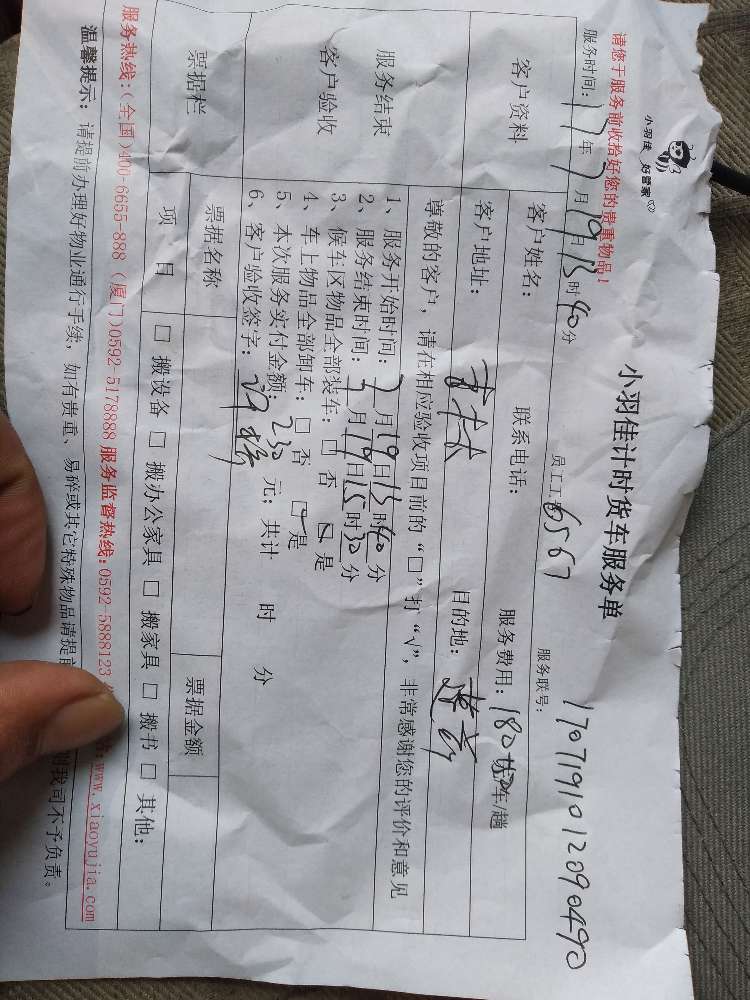 小羽佳 好管家
小羽佳计时货车服务单
请您于服务前收拾好您的贵重物品!
服务时间: 17年7月19日13时40分 员工工 6567 服务联号: 1707191012090490
客户资料
客户姓名: 联系电话: 服务费用: 180 车/趟
客户地址: 目的地:
尊敬的客户, 请在相应验收项目前的“□”打“√”, 非常感谢您的评价和意见
服务结束
客户验收
1、服务开始时间: 7月19日13时40分
2、服务结束时间: 7月19日15时30分
3、候车区物品全部装车: □ 否 ☑ 是
4、车上物品全部卸车: □ 否 ☑ 是
5、本次服务实付金额: 230 元; 共计 时 分
6、客户验收签字:
票据栏
票据名称 票据金额
项 目 □ 搬设备 □ 搬办公家具 □ 搬家具 □ 搬书 □ 其他:
服务热线:(全国)400-6655-888 (厦门)0592-5178888 服务监督热线:0592-5888123 www.xiaoyujia.com
温馨提示: 请提前办理好物业通行手续, 如有贵重、易碎或其它特殊物品请提前 则我司不予负责。